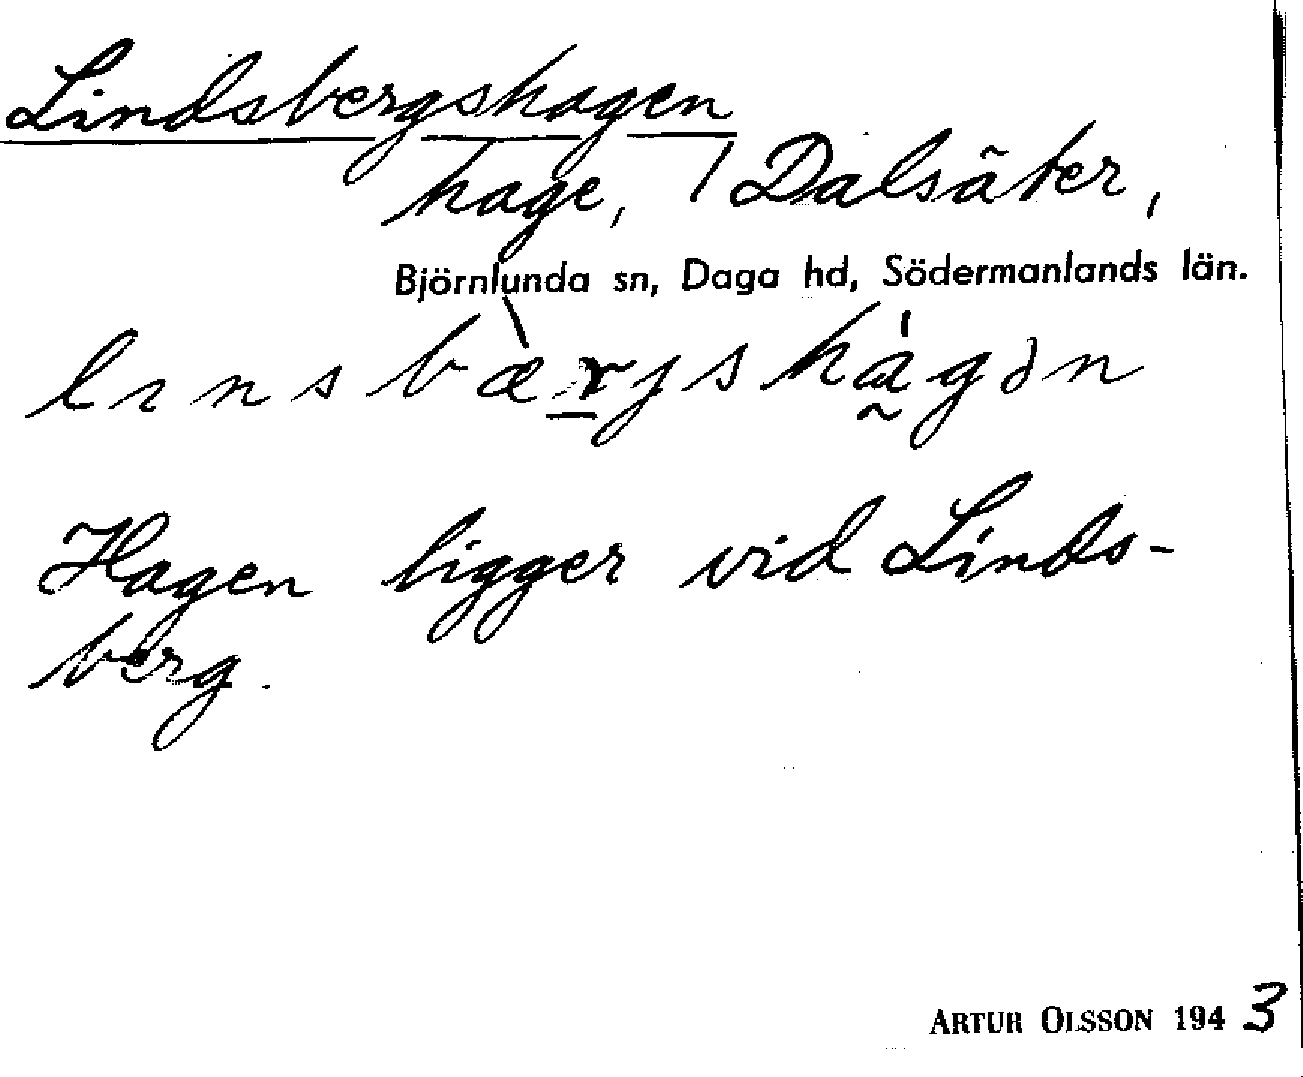 Lindsbergshagen
hage, / Dalsäter,
Björnlunda sn, Daga hd, Södermanlands län.
linsbæ̀rjshágən
Hagen ligger vid Linds-
berg.
ARTUR OLSSON 1943